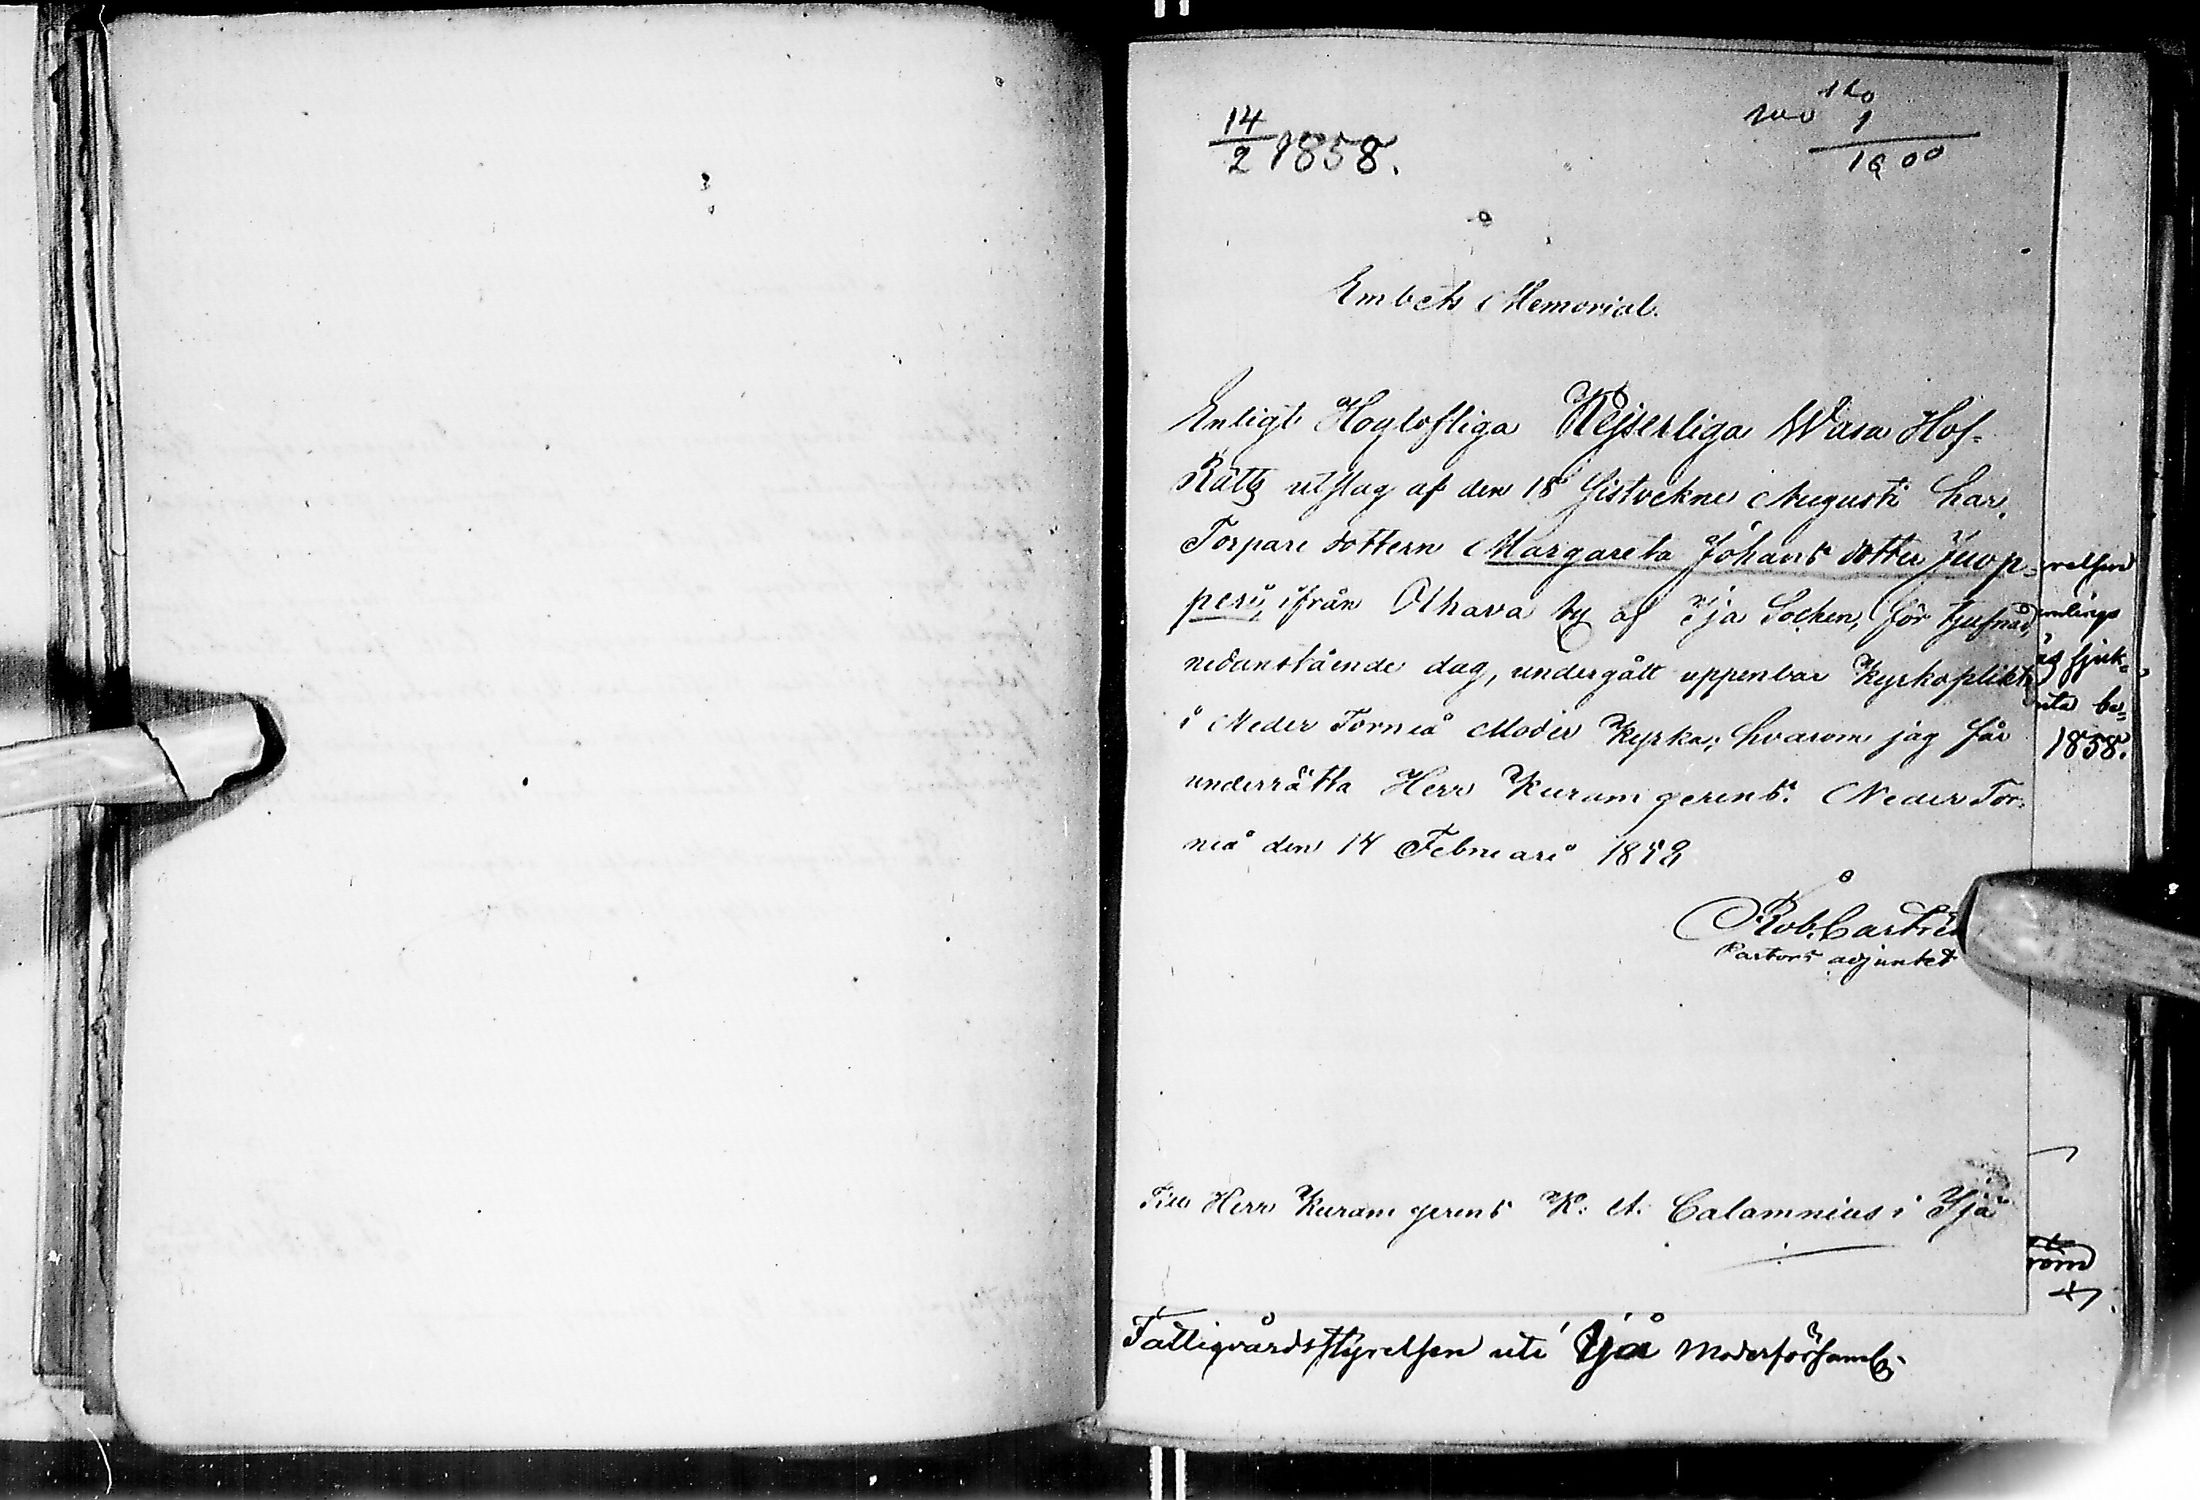 14/2 1858.
1600
Embets Memorial.
Enligt Höglofliga Kejserliga Wasa Hof-
Rätts utslag af den 18 sistvekne Augusti har,
Torpare dottern Margareta Johans dotter Juop-
peri, ifrån Olhava by af Ijo Socken, för tjufnad,
nedanstående dag, undergått uppenbar Kyrkoplikt
i Neder Torneå Moder Kyrka; hvarom jag får
underrätta Herr Kuram gerens. Neder Tor-
neå den 14 Februari 1858
Rob. Castrén
Pastors adjunkt
Till Herr Kuram gerens K. A. Calamnius i Ijo
Fattigvårdsstyrelsen uti Ijo Moderförsamlg.
relsen
mlings
sjuk-
be-
1858.
röm